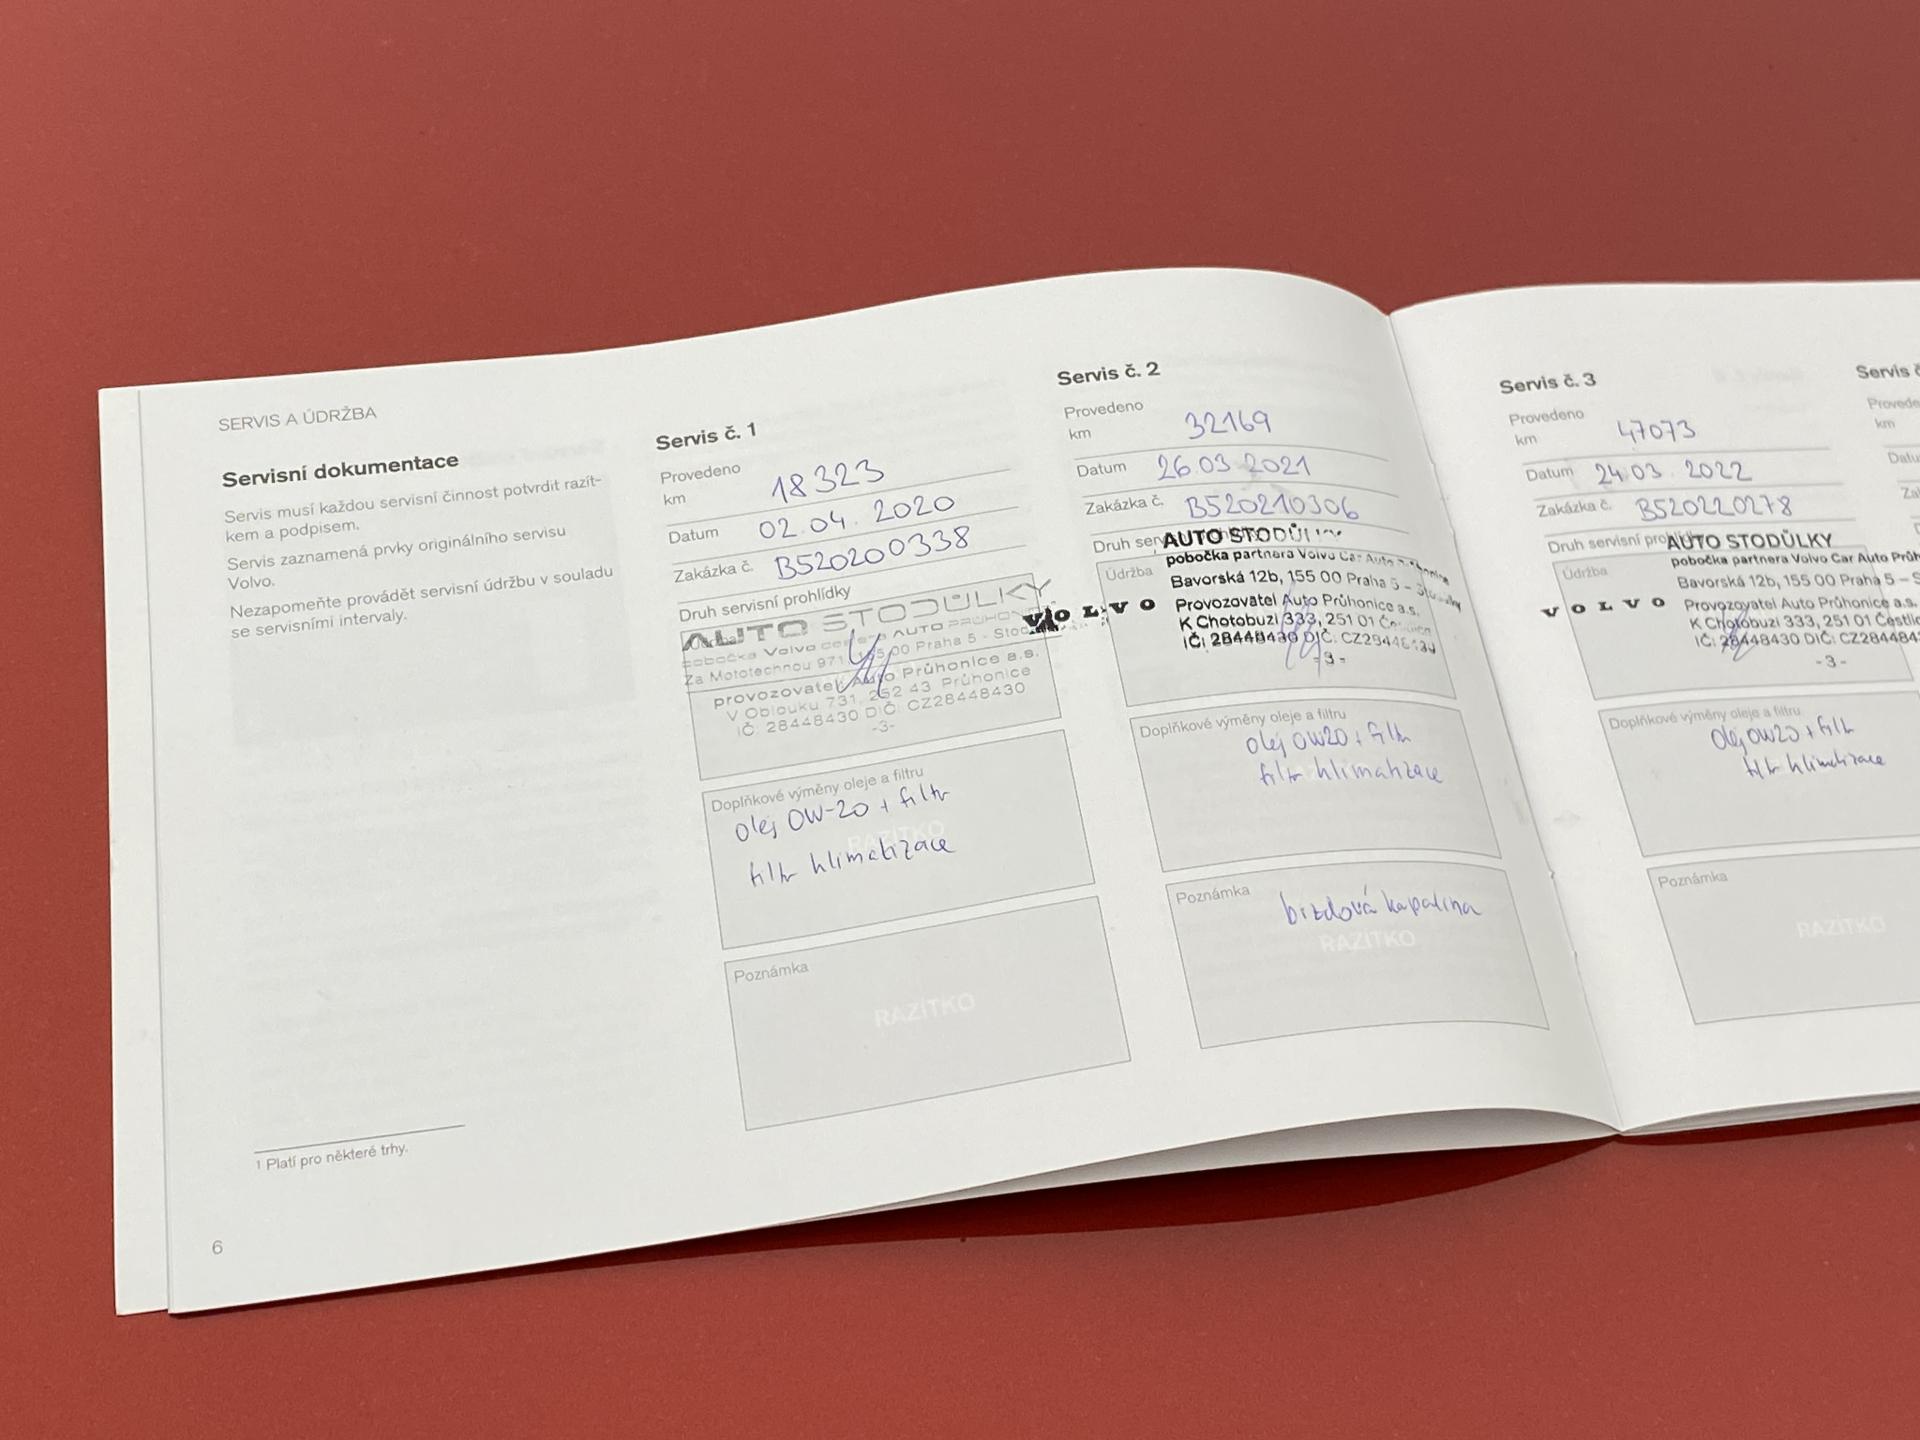 SERVIS A ÚDRŽBA
Servisní dokumentace
Servis musí každou servisní činnost potvrdit razít-
kem a podpisem.
Servis zaznamená prvky originálního servisu
Volvo.
Nezapomeňte provádět servisní údržbu v souladu
se servisními intervaly.
1 Platí pro některé trhy.
6
Servis č. 1
Provedeno
km 18323
Datum 02.04.2020
Zakázka č. B520200338
Druh servisní prohlídky
AUTO STODŮLKY
pobočka Volvo AUTO PRŮHONICE
Za Mototechnou 971, 155 00 Praha 5 - Stod
provozovatel Auto Průhonice a.s.
V Oblouku 731, 252 43 Průhonice
IČ: 28448430 DIČ: CZ28448430
-3-
Doplňkové výměny oleje a filtru
olej 0W-20 + filtr
RAZÍTKO
filtr klimatizace
Poznámka
RAZÍTKO
Servis č. 2
Provedeno
km 32169
Datum 26.03.2021
Zakázka č. B520210306
Druh ser
AUTO STODŮL
Údržba
pobočka partnera Volvo Car Auto Průhonice
Bavorská 12b, 155 00 Praha 5 - Stodůlky
VOLVO Provozovatel Auto Průhonice a.s.
K Chotobuzi 333, 251 01
IČ: 28448430 DIČ: CZ28448430
-3-
Doplňkové výměny oleje a filtru
olej 0W20 + filtr
filtr klimatizace
Poznámka
brzdová kapalina
RAZÍTKO
Servis č. 3
Provedeno
km 47073
Datum 24.03.2022
Zakázka č. B520220278
Druh servisní prohlídky
AUTO STODŮLKY
Údržba
pobočka partnera Volvo Car Auto Průh
Bavorská 12b, 155 00 Praha 5 - S
VOLVO Provozovatel Auto Průhonice a.s.
K Chotobuzi 333, 251 01 Čestlic
IČ: 28448430 DIČ: CZ284484
-3-
Doplňkové výměny oleje a filtru
olej 0W20 + filtr
filtr klimatizace
Poznámka
RAZÍTKO
Servis č
Provede
km
Datu
Za